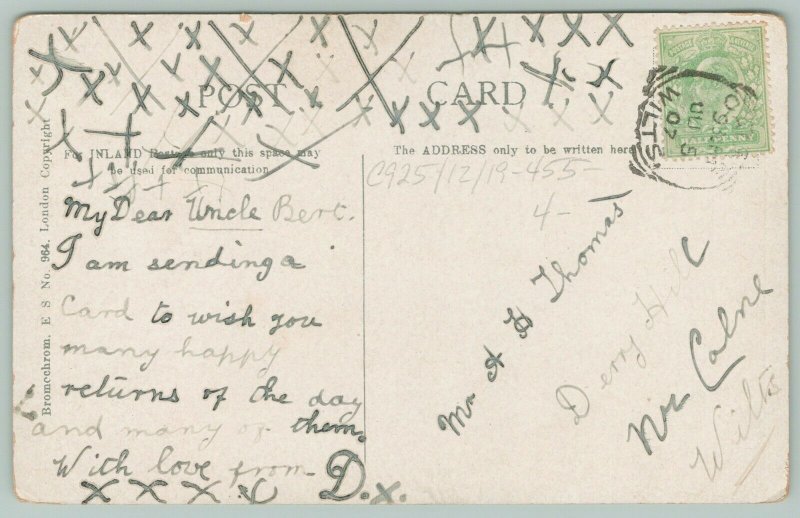 POST CARD
For INLAND Postage only this space may
be used for communication
The ADDRESS only to be written here
Bromechrom. E S No. 964. London Copyright
WILTS
07
C925/12/19-455-
4-
My Dear Uncle Bert.
I am sending a
Card to wish you
many happy
returns of the day
and many of them.
With love from D. x.
x x x x x
Mr A H Thomas
Derry Hill
Nr Calne
Wilts